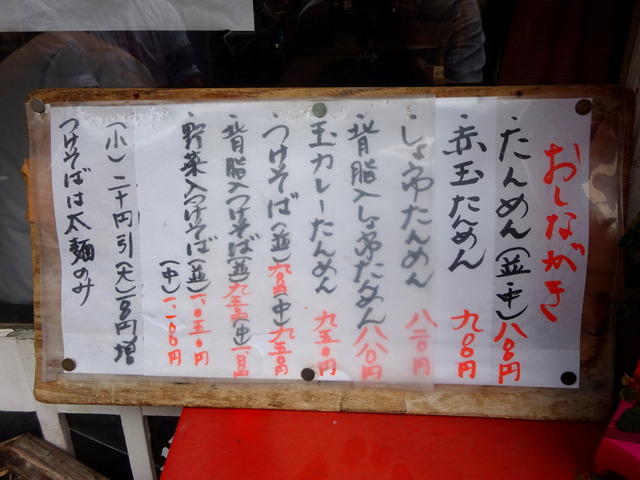 おしながき
たんめん(並・中)八〇〇円
赤玉たんめん 九〇〇円
しょう油たんめん 八二〇円
背脂入しょう油たんめん 八八〇円
玉カレーたんめん 九五〇円
つけそば(並)九〇〇(中)九五〇円
背脂入つけそば(並)九五〇(中)一、〇〇〇円
野菜入つけそば(並)一、〇五〇円
(中)一、一〇〇円
(小)二十円引(大)百円増
つけそばは太麺のみ